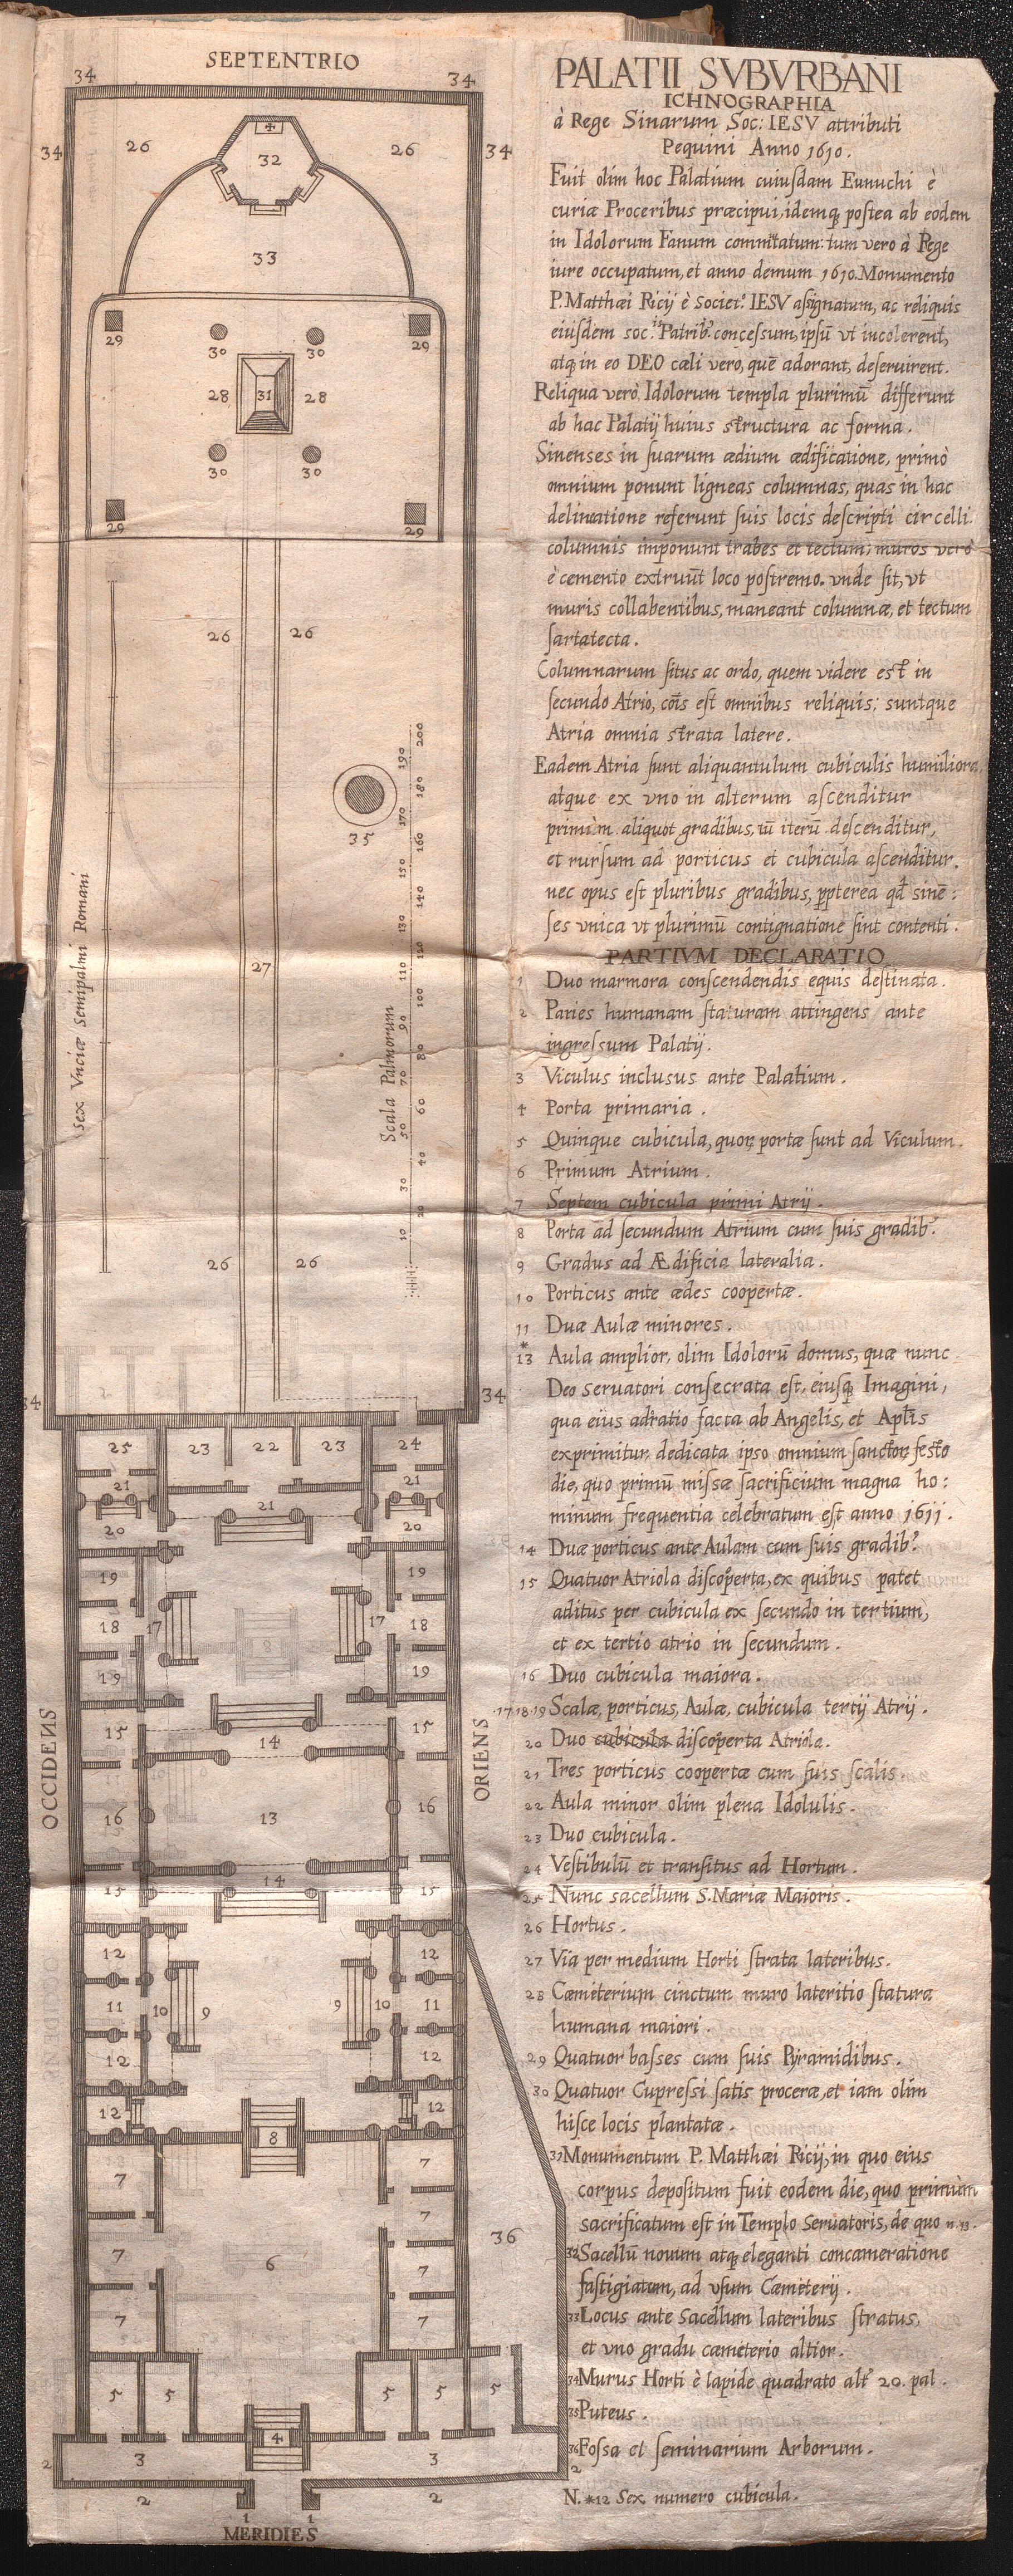 SEPTENTRIO
34
34
34
26
32
26
34
33
29
30
30
29
28
31
28
30
30
29
29
26
26
35
sex Vnciæ Semipalmi Romani
27
Scala Palmorum
10
20
30
40
50
60
70
80
90
100
110
120
130
140
150
160
170
180
190
200
26
26
34
34
25
23
22
23
24
21
21
21
20
20
19
19
18
17
17
18
19
19
15
14
15
16
13
16
15
14
15
12
12
11
10
9
9
10
11
12
12
12
8
12
7
7
7
7
6
7
7
7
36
5
5
5
5
5
4
2
3
3
2
2
2
1
1
MERIDIES
OCCIDENS
ORIENS
PALATII SVBVRBANI
ICHNOGRAPHIA
à Rege Sinarum Soc: IESV attributi
Pequini Anno 1610.
Fuit olim hoc Palatium cuiusdam Eunuchi è
curiæ Proceribus præcipui, idemq, postea ab eodem
in Idolorum Fanum commutatum: tum vero à Rege
iure occupatum, et anno demum 1610. Monumento
P. Matthæi Ricij è Societ.e IESV assignatum, ac reliquis
eiusdem soc.is Patrib.s concessum, ipsū vt incolerent,
atq, in eo DEO cæli vero, quē adorant, deseruirent.
Reliqua verò Idolorum templa plurimū differunt
ab hac Palatij huius structura ac forma.
Sinenses in suarum ædium ædificatione, primò
omnium ponunt ligneas columnas, quas in hac
delineatione referunt suis locis descripti circelli
columnis imponunt trabes et tectum; muros verò
è cemento extruūt loco postremo. vnde fit, vt
muris collabentibus, maneant columnæ, et tectum
sartatecta.
Columnarum situs ac ordo, quem videre est in
secundo Atrio, cōis est omnibus reliquis; suntque
Atria omnia strata latere.
Eadem Atria sunt aliquantulum cubiculis humiliora
atque ex vno in alterum ascenditur
primùm aliquot gradibus, tū iterū descenditur,
et rursum ad porticus et cubicula ascenditur,
nec opus est pluribus gradibus, ppterea qd sinē:
ses vnica vt plurimū contignatione sint contenti.
PARTIVM DECLARATIO
1 Duo marmora conscendendis equis destinata.
2 Paries humanam staturam attingens ante
ingressum Palatij.
3 Viculus inclusus ante Palatium.
4 Porta primaria.
5 Quinque cubicula, quor, portæ sunt ad Viculum.
6 Primum Atrium.
7 Septem cubicula primi Atrij.
8 Porta ad secundum Atrium cum suis gradib.s
9 Gradus ad Ædificia lateralia.
10 Porticus ante ædes coopertæ.
11 Duæ Aulæ minores.
*
13 Aula amplior, olim Idolorū domus, quæ nunc
Deo seruatori consecrata est, eiusq, Imagini,
qua eius adratio facta ab Angelis, et Aplis
exprimitur, dedicata ipso omnium sanctor, festo
die, quo primū missæ sacrificium magna ho:
minum frequentia celebratum est anno 1611.
14 Duæ porticus ante Aulam cum suis gradib.s
15 Quatuor Atriola discoperta, ex quibus patet
aditus per cubicula ex secundo in tertium,
et ex tertio atrio in secundum.
16 Duo cubicula maiora.
17 18 19 Scalæ, porticus, Aulæ, cubicula tertij Atrij.
20 Duo cubicula discoperta Atriola.
21 Tres porticus coopertæ cum suis scalis.
22 Aula minor olim plena Idolulis.
23 Duo cubicula.
24 Vestibulū et transitus ad Hortum.
25 Nunc sacellum S. Mariæ Maioris.
26 Hortus.
27 Via per medium Horti strata lateribus.
28 Cæmeterium cinctum muro lateritio statura
humana maiori.
29 Quatuor basses cum suis Pyramidibus.
30 Quatuor Cupressi satis proceræ, et iam olim
hisce locis plantatæ.
31 Monumentum P. Matthæi Ricij, in quo eius
corpus depositum fuit eodem die, quo primùm
sacrificatum est in Templo Seruatoris, de quo n. 13.
32 Sacellū nouum atq, eleganti concameratione
fastigiatum, ad vsum Cæmeterij.
33 Locus ante Sacellum lateribus stratus,
et vno gradu cæmeterio altior.
34 Murus Horti è lapide quadrato alt.s 20. pal.
35 Puteus.
36 Fossa et seminarium Arborum.
N. *12 Sex numero cubicula.